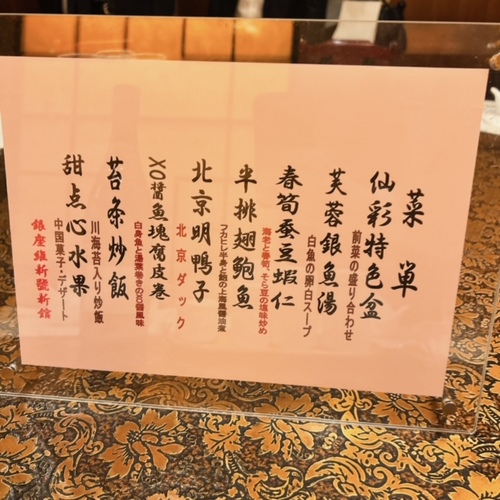 菜単
仙彩特色盆
前菜の盛り合わせ
芙蓉銀魚湯
白魚の卵白スープ
春筍蚕豆蝦仁
海老と春筍、そら豆の塩味炒め
半排翅鮑魚
フカヒレ半身と鮑の上海風醤油煮
北京明鴨子
北京ダック
XO醬魚塊腐皮巻
白身魚と湯葉巻きのXO醤風味
苔条炒飯
川海苔入り炒飯
甜点心水果
中国菓子・デザート
銀座維新號新館